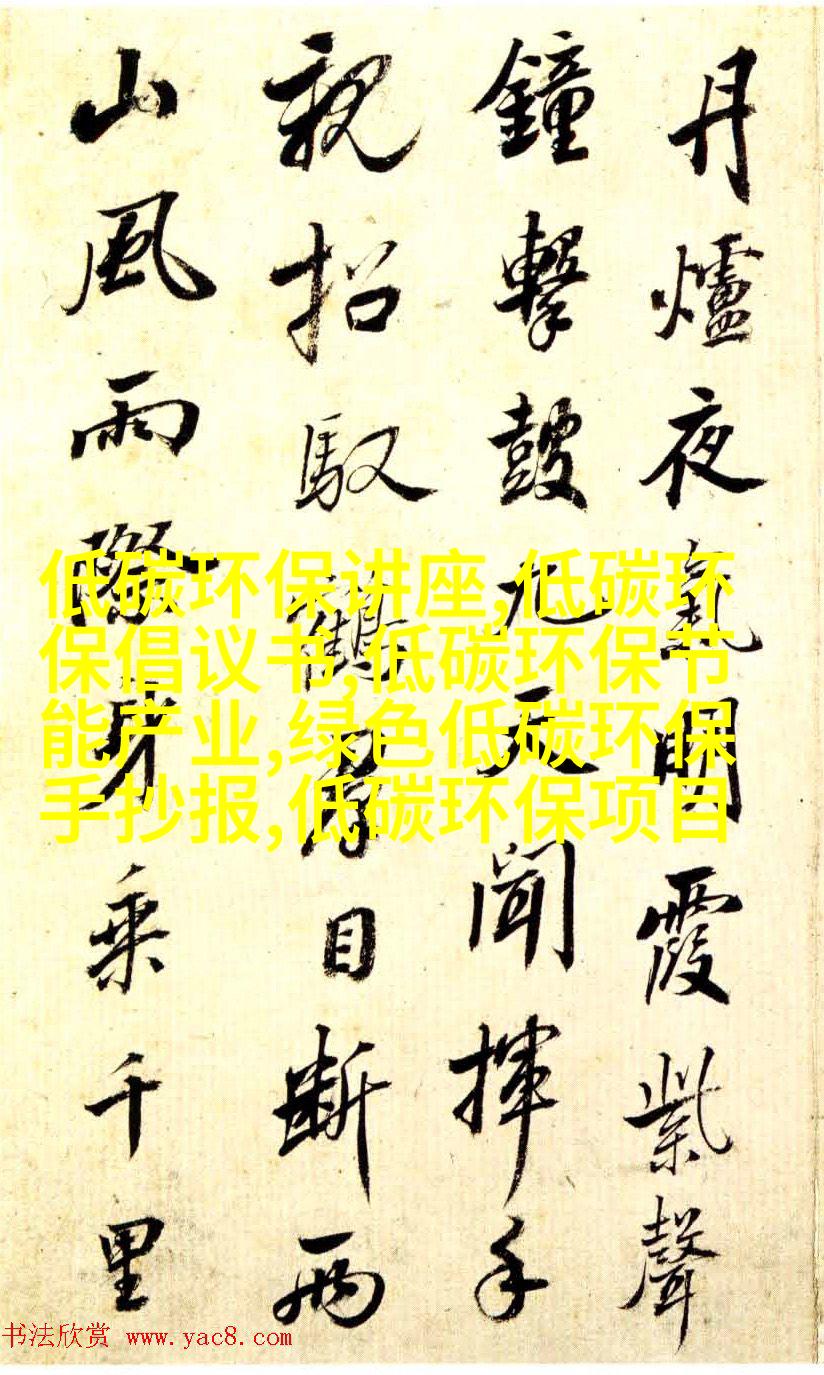 丹爐夜氣明霞紫聲
鐘擊鼓九天聞揮手
親招馭鶴羣目断兩
山風雨際身乘千里
低碳环保讲座,低碳环
保倡议书,低碳环保节
能产业,绿色低碳环保
手抄报,低碳环保项目
书法欣赏 www.yac8.com